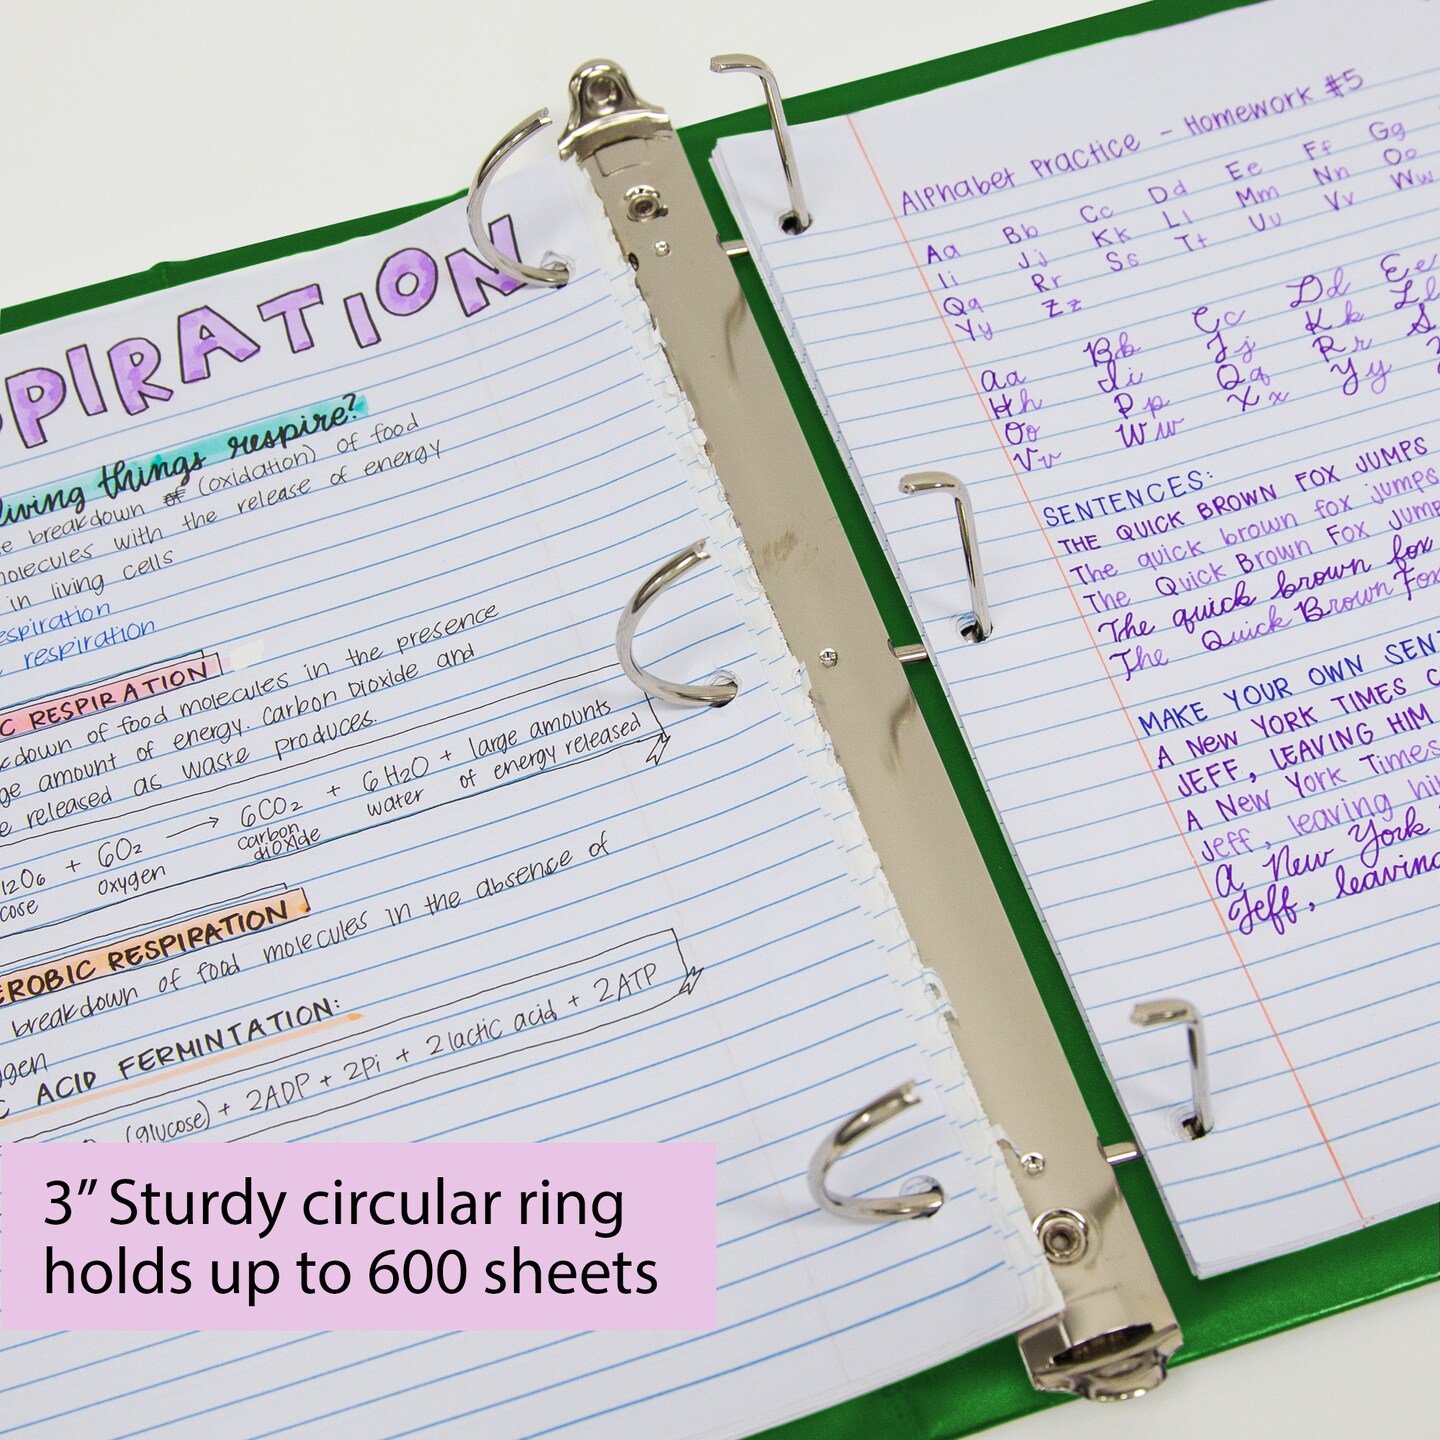 PIRATION
living things respire?
breakdown of (oxidation) of food
molecules with the release of energy
in living cells
respiration
respiration
C RESPIRATION
kdown of food molecules in the presence
ge amount of energy. Carbon Dioxide and
e released as waste produces.
12O6 + 6O2 → 6CO2 + 6H2O + large amounts
cose oxygen carbon dioxide water of energy released
EROBIC RESPIRATION
breakdown of food molecules in the absence of
gen
C ACID FERMINTATION:
(glucose) + 2ADP + 2Pi + 2 lactic acid + 2ATP
Alphabet Practice - Homework #5
Aa Bb Cc Dd Ee Ff Gg
Ii Jj Kk Ll Mm Nn Oo
Qq Rr Ss Tt Uu Vv Ww
Yy Zz
Aa Bb Cc Dd Ee
Hh Ii Jj Kk Ll
Oo Pp Qq Rr S
Vv Ww Xx Yy Z
SENTENCES:
THE QUICK BROWN FOX JUMPS
The quick brown fox jumps
The Quick Brown Fox Jump
The quick brown fox
The Quick Brown Fox
MAKE YOUR OWN SENT
A New YORK TIMES C
JEFF, LEAVING HIM
A New York Times
Jeff, leaving hi
A New York
Jeff, leaving
3” Sturdy circular ring
holds up to 600 sheets